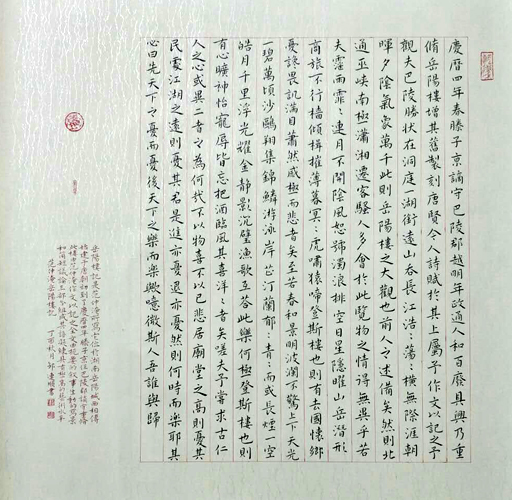 慶曆四年春滕子京謫守巴陵郡越明年政通人和百廢具興乃重
脩岳陽樓增其舊製刻唐賢今人詩賦於其上屬予作文以記之予
觀夫巴陵勝狀在洞庭一湖銜遠山吞長江浩:蕩:橫無際涯朝
暉夕陰氣象萬千此則岳陽樓之大觀也前人之述備矣然則北
通巫峽南極瀟湘遷客騷人多會於此覽物之情得無異乎若
夫霪雨霏:連月不開陰風怒號濁浪排空日星隱曜山岳潛形
商旅不行檣傾楫摧薄暮冥:虎嘯猿啼登斯樓也則有去國懷鄉
憂讒畏譏滿目蕭然感極而悲者矣至若春和景明波瀾不驚上下天光
一碧萬頃沙鷗翔集錦鱗游泳岸芷汀蘭郁:青:而或長煙一空
皓月千里浮光耀金靜影沉璧漁歌互答此樂何極登斯樓也則
有心曠神怡寵辱皆忘把酒臨風其喜洋:者矣嗟夫予嘗求古仁
人之心或異二者之為何哉不以物喜不以己悲居廟堂之高則憂其
民處江湖之遠則憂其君是進亦憂退亦憂然則何時而樂耶其
必曰先天下之憂而憂後天下之樂而樂歟噫微斯人吾誰與歸
岳陽樓記是范仲淹所寫湖南岳陽城西相傳
始建於唐朝
范仲淹岳陽樓記 丁酉秋月 書